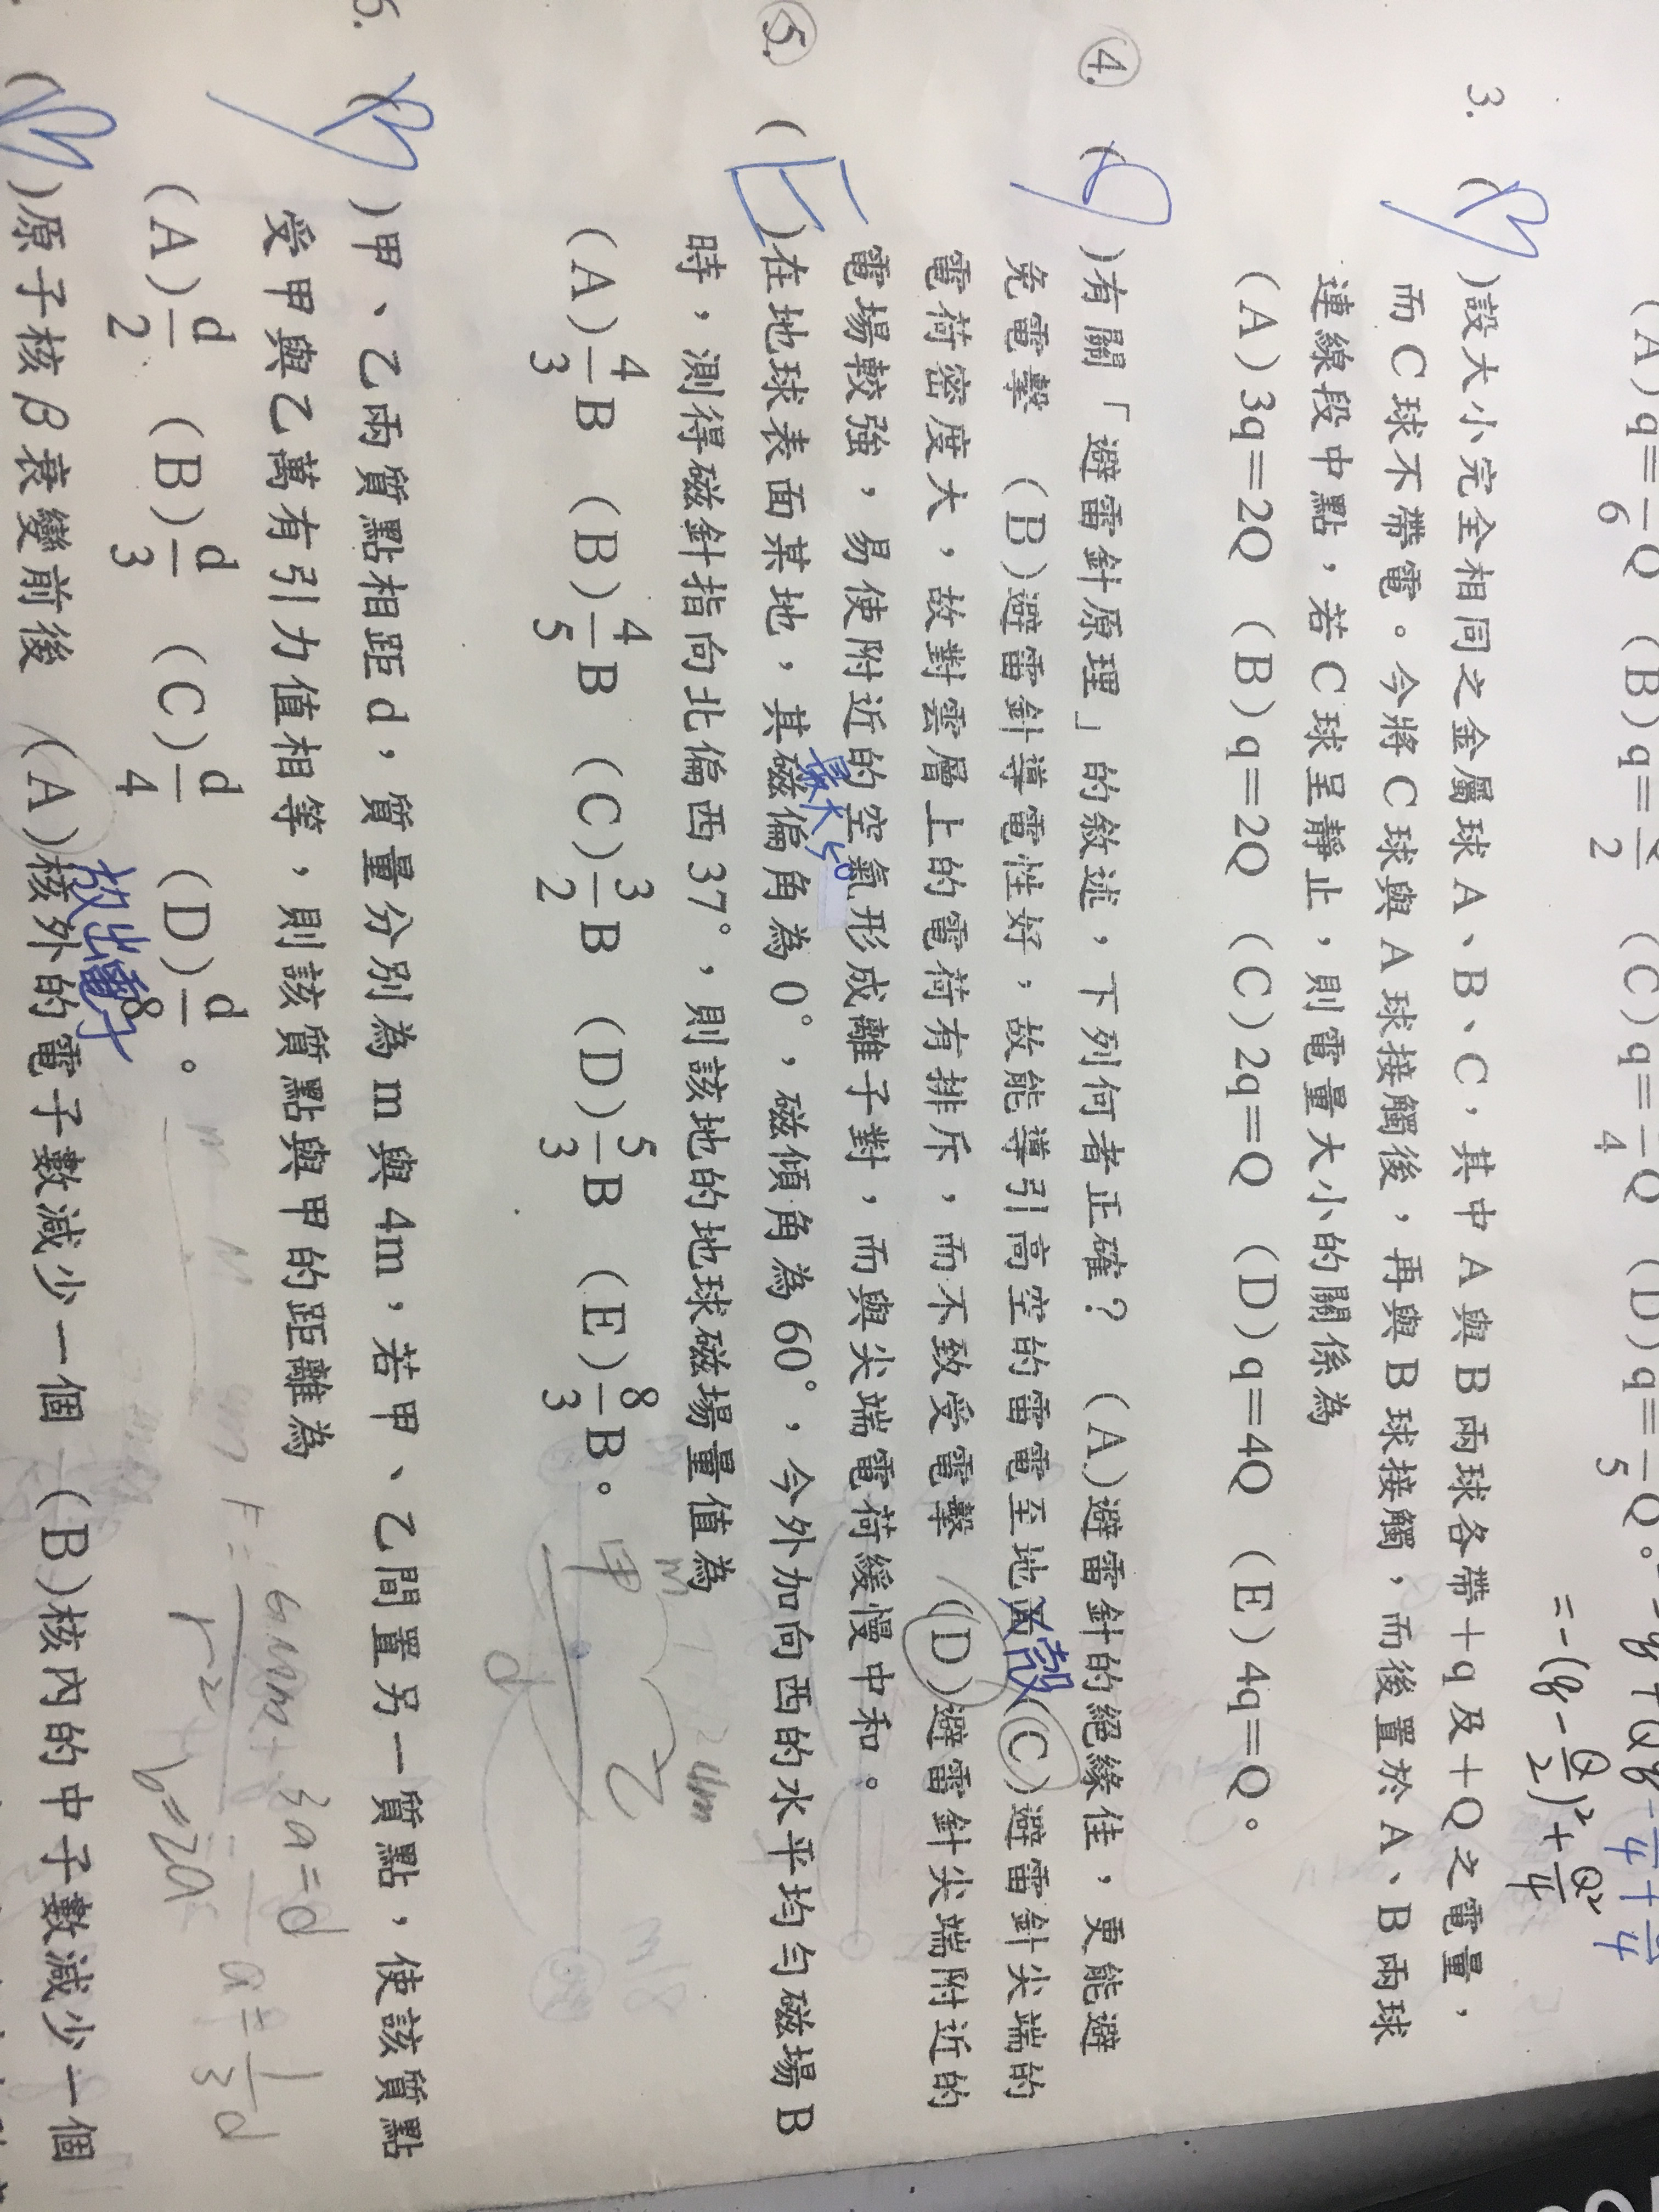 (A)q=1/6Q (B)q=Q/2 (C)q=1/4Q (D)q=1/5Q。
=-(q-Q/2)²+Q²/4
3. ( )設大小完全相同之金屬球A、B、C,其中A與B兩球各帶+q及+Q之電量,
而C球不帶電。今將C球與A球接觸後,再與B球接觸,而後置於A、B兩球
連線段中點,若C球呈靜止,則電量大小的關係為
(A)3q=2Q (B)q=2Q (C)2q=Q (D)q=4Q (E)4q=Q。
④. ( )有關「避雷針原理」的敘述,下列何者正確? (A)避雷針的絕緣佳,更能避
免電擊 (B)避雷針導電性好,故能導引高空的雷電至地面 (C)避雷針尖端的
電荷密度大,故對雲層上的電荷有排斥,而不致受電擊 (D)避雷針尖端附近的
電場較強,易使附近的空氣形成離子對,而與尖端電荷緩慢中和。
⑤. (E)在地球表面某地,其磁偏角為0°,磁傾角為60°,今外加向西的水平均勻磁場B
時,測得磁針指向北偏西37°,則該地的地球磁場量值為
(A)4/3B (B)4/5B (C)3/2B (D)5/3B (E)8/3B。
甲 乙
d
6. ( )甲、乙兩質點相距d,質量分別為m與4m,若甲、乙間置另一質點,使該質點
受甲與乙萬有引力值相等,則該質點與甲的距離為
(A)d/2 (B)d/3 (C)d/4 (D)d/8。
3a=d
b=2a
a=1/3d
放出電子
( )原子核β衰變前後 (A)核外的電子數減少一個 (B)核內的中子數減少一個